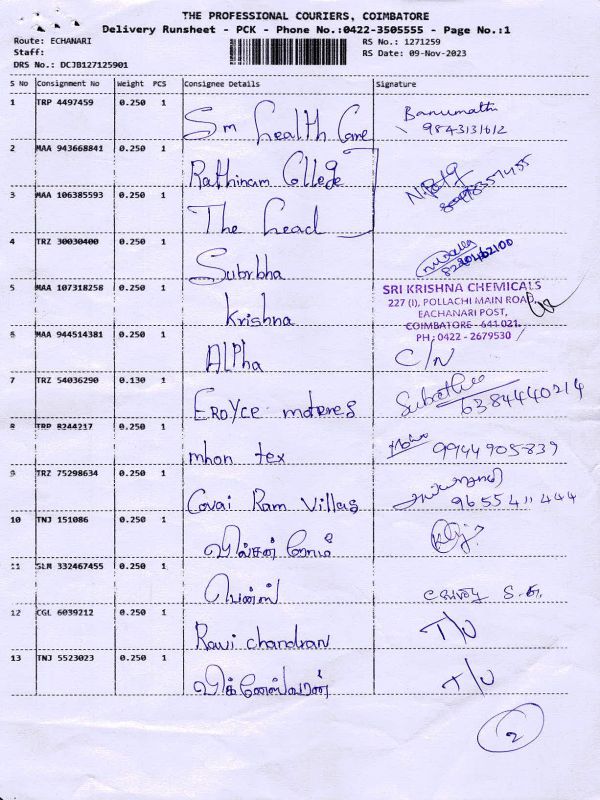 THE PROFESSIONAL COURIERS, COIMBATORE
Delivery Runsheet - PCK - Phone No.:0422-3505555 - Page No.:1
Route: ECHANARI
RS No.: 1271259
Staff:
RS Date: 09-Nov-2023
DRS No.: DCJB127125901
S No Consignment No Weight PCS Consignee Details Signature
1 TRP 4497459 0.250 1 Sm health Care Banumathi
9843131612
2 MAA 943668841 0.250 1 Rathinam College
3 MAA 106385593 0.250 1 The head
4 TRZ 30030400 0.250 1 Subrbha
8220462100
5 MAA 107318258 0.250 1 krishna
SRI KRISHNA CHEMICALS
227 (I), POLLACHI MAIN ROAD,
EACHANARI POST,
COIMBATORE - 641 021.
PH: 0422 - 2679530
6 MAA 944514381 0.250 1 Alpha C/N
7 TRZ 54036290 0.130 1 EROYCE motores
6384440214
8 TRP 8244217 0.250 1 mhon tex 9944905839
9 TRZ 75298634 0.250 1 Covai Ram Villas
9655411444
10 TNJ 151086 0.250 1 வில்சன்
11 SLM 332467455 0.250 1
12 CGL 6039212 0.250 1 Ravi chandran T/U
13 TNJ 5523023 0.250 1 விக்னேஸ்வரன் T/U
2